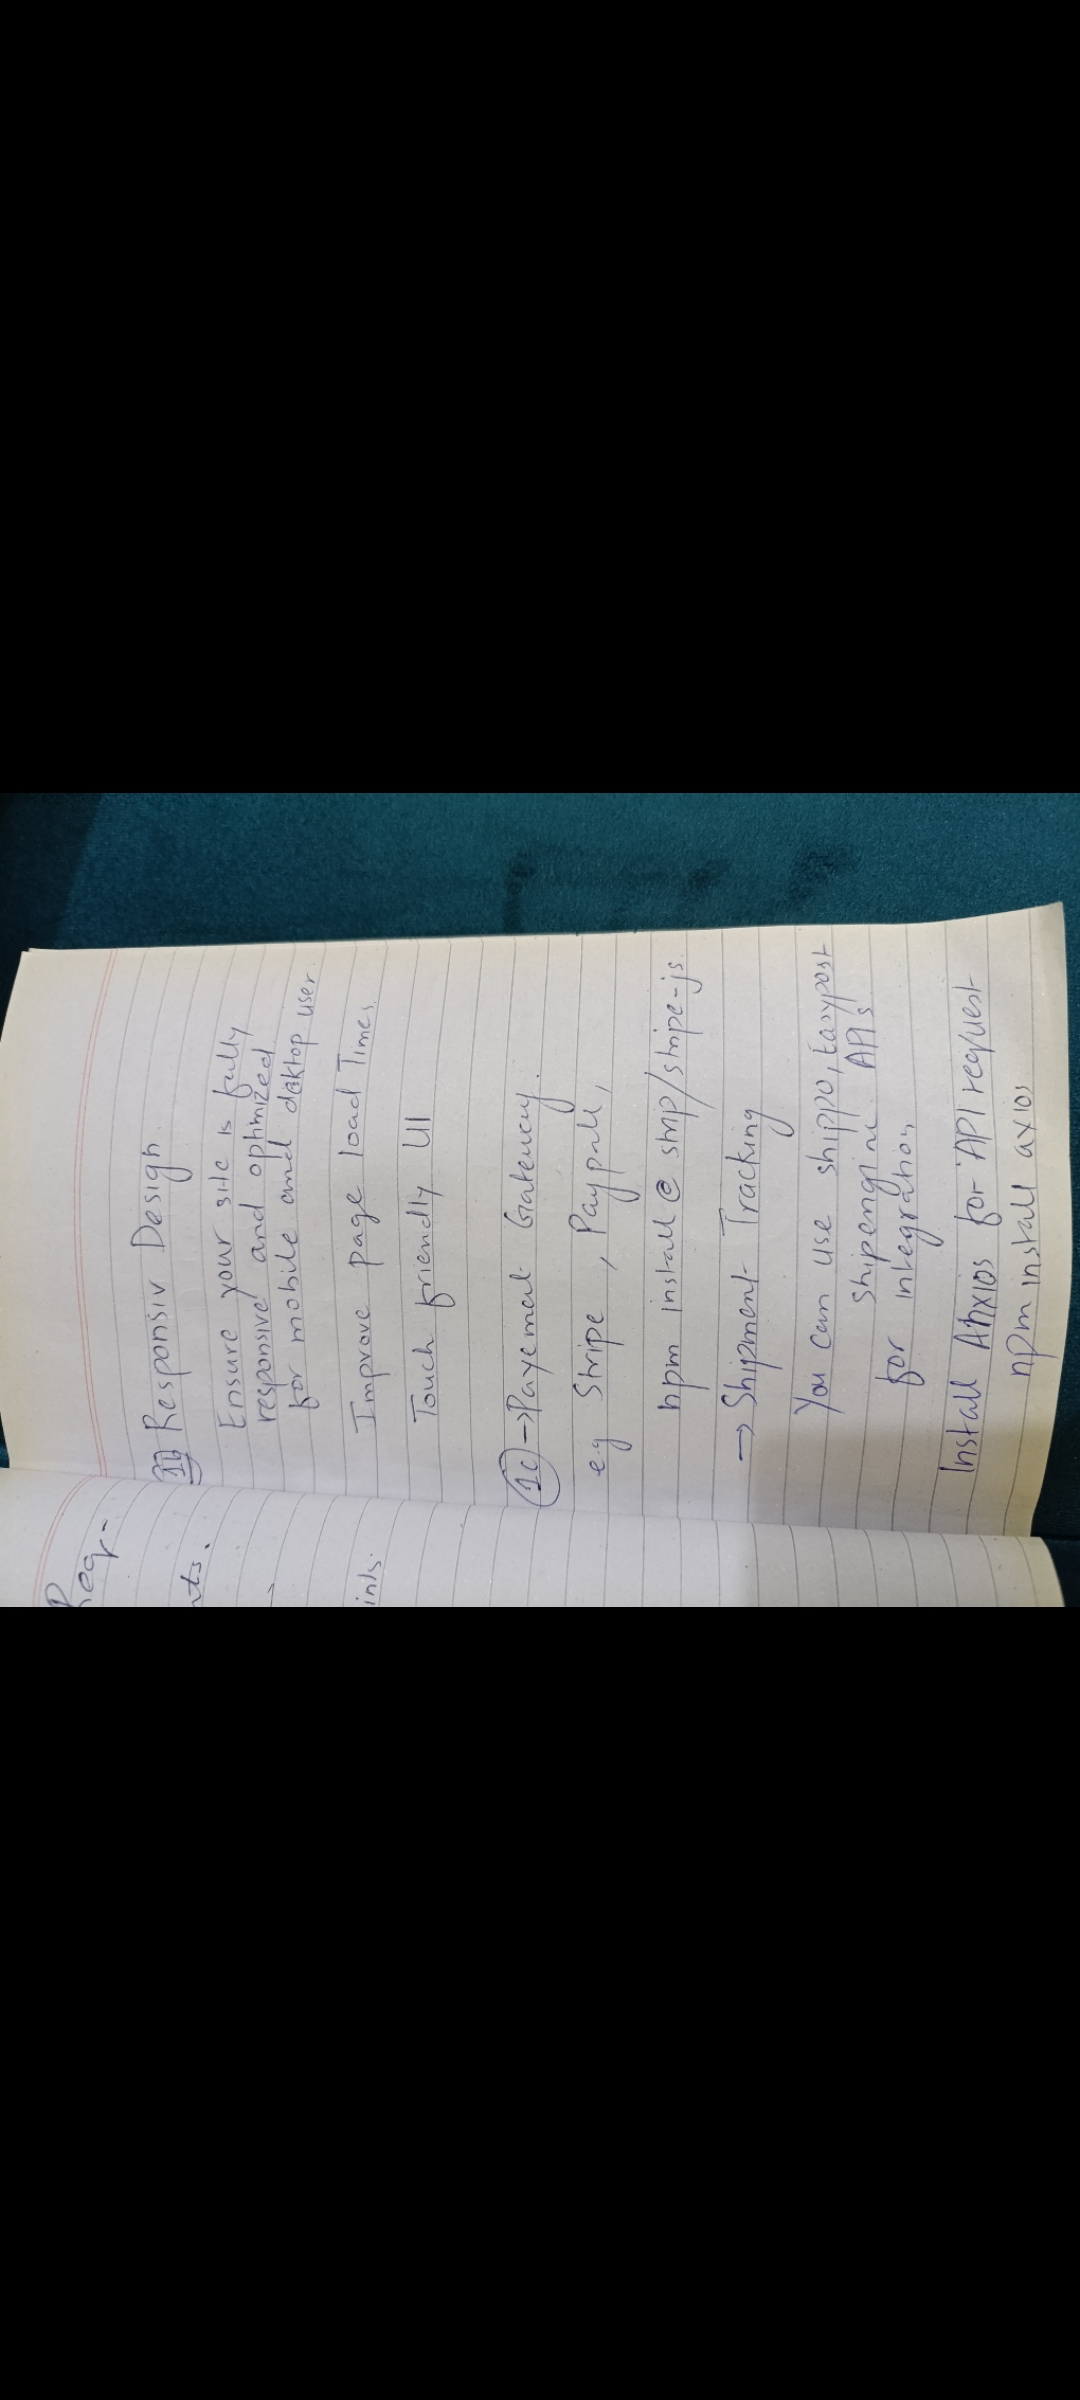 Reqr-
nts.
ints.
1b Responsiv Design
Ensure your site is fully
responsive and optimized
for mobile and desktop user.
Improve page load Times.
Touch friendly UI
1c →Payement Gateway.
e.g Stripe , Paypall,
npm install @ strip/stripe-js.
→ Shipment Tracking
You can use shippo, Easypost
shipengine APIs
for integration
Install Ahxios for API request
npm install axios